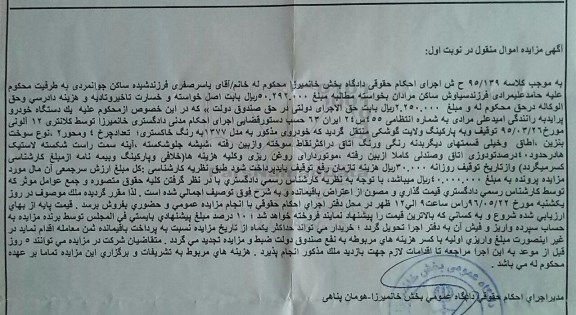 آگهی مزایده اموال منقول در نوبت اول:
به موجب کلاسه ۹۵/۱۳۹ ح ش اجرای احکام حقوقی دادگاه بخش خانمیرزا محکوم له خانم/آقای یاسرصفری فرزندشیده ساکن جوانمردی به طرفیت محکوم
علیه حامدعلیمرادی فرزندسیاوش ساکن مرادان بخواسته مطالبه مبلغ ۵۰.۲۹۲.۰۰۰ریال بابت اصل خواسته و خسارت تاخیروتادیه و هزینه دادرسی وحق
الوکاله درحق محکوم له و مبلغ ۲.۲۵۰.۰۰۰ ریال بابت حق الاجرای دولتی در حق صندوق دولت » که در این خصوص ازمحکوم علیه یک دستگاه خودرو
پرایدبه رانندگی امیدعلی مرادی به شماره انتظامی ۲۴ص۴۵۵ ایران ۶۳ حسب دستورقضایی اجرای احکام مدنی دادگستری خانمیرزا توسط کلانتری ۱۲ آلونی
مورخ۹۵/۰۳/۲۶ توقیف وبه پارکینگ ولایت گوشکی منتقل گردید که خودروی مذکور به مدل ۱۳۷۷به رنگ خاکستری؛ تعدادچرخ ۴ ومحور۲ ،نوع سوخت
بنزین ،اطاق وخیلی قسمتهای دیگربدنه رنگی ورنگ اتاق دراکثرنقاط سوخته وازبین رفته ،شیشه جلوشکسته ،آینه سمت راست شکسته لاستیک
هادرحدود۴۰درصدتودوزی اتاق وصندلی کاملا ازبین رفته ،موتوردارای روغن ریزی وکلیه هزینه ها(خلافی وپارکینگ وبیمه نامه ازمبلغ کارشناسی
کسرمیگردد) وازتاریخ توقیف روزانه ریال هزینه تازمان رفع توقیف بایدپرداخت شود طبق نظریه کارشناسی ؛کل مبلغ ارزش سرجمعی آن مال مورد
مزایده پرونده به مبلغ ریال میباشد، با توجه به نظریه کارشناس رسمی دادگستری با در نظر گرفتن کلیه حقوق متصوره و جمع عوامل موثر که
توسط کارشناس رسمی دادگستری قیمت گذاری و مصون از اعتراض باقیمانده و به شرح فوق توصیف اجمالی شده است . لذا مقرر گردیده ملک موصوف در روز
یکشنبه مورخ ۹۶/۰۵/۲۲راس ساعت۹ الی۱۲ ظهر در محل دفتر اجرای احکام حقوقی با انجام مزایده عمومی و حضوری بفروش برسد . قیمت پایه از بهای
ارزیابی شده شروع و به کسانی که بالاترین قیمت را پیشنهاد نمایند فروخته خواهد شد ؛ ۱۰ درصد مبلغ پیشنهادی بایستی فی المجلس توسط برنده مزایده به
حساب سپرده واریز و فیش آن به دفتر اجرا تحویل گردد ؛ خریدار می تواند حداکثر یکماه از تاریخ مزایده نسبت به پرداخت باقیمانده ثمن معامله اقدام نماید در
غیر اینصورت مبلغ واریزی اولیه با کسر هزینه های مربوطه به نفع صندوق دولت ضبط و مزایده تجدید می گردد . متقاضیان شرکت در مزایده می توانند ۵ روز
قبل از موعد به این اجرا مراجعه تا اقدامات لازم جهت بازدید ملک مذکور انجام پذیرد . هزینه های مربوط به تشریفات و برگزاری این مزایده تماما بر عهده
محکوم له می باشد .
مدیراجرای احکام حقوقی دادگاه عمومی بخش خانمیرزا-هومان پناهی